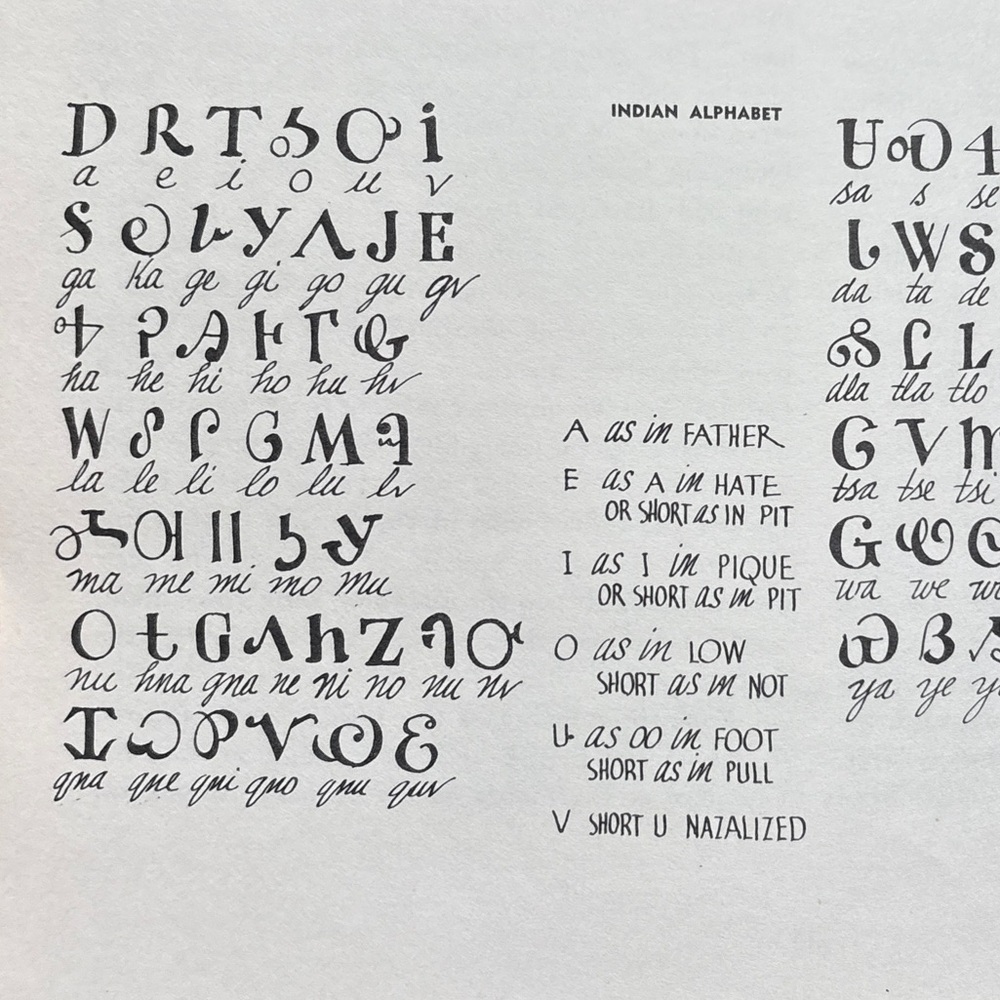 INDIAN ALPHABET
Ꭰ Ꭱ Ꭲ Ꭳ Ꭴ Ꭵ
a e i o u v
Ꭶ Ꭷ Ꭸ Ꭹ Ꭺ Ꭻ Ꭼ
ga ka ge gi go gu gv
Ꭽ Ꭾ Ꭿ Ꮀ Ꮁ Ꮂ
ha he hi ho hu hv
Ꮃ Ꮄ Ꮅ Ꮆ Ꮇ Ꮈ
la le li lo lu lv
Ꮉ Ꮊ Ꮋ Ꮌ Ꮍ
ma me mi mo mu
Ꮎ Ꮏ Ꮐ Ꮑ Ꮒ Ꮓ Ꮔ Ꮕ
nu hna gna ne ni no nu nv
Ꮖ Ꮗ Ꮘ Ꮙ Ꮚ Ꮛ
qua que qui quo quu quv
A as in FATHER
E as A in HATE
OR SHORT as IN PIT
I as I in PIQUE
OR SHORT as in PIT
O as in LOW
SHORT as in NOT
U as OO in FOOT
SHORT as in PULL
V SHORT U NAZALIZED
Ꮜ Ꮝ Ꮞ
sa s se
Ꮣ Ꮤ Ꮥ
da ta de
Ꮬ Ꮭ Ꮮ
dla tla tlo
Ꮳ Ꮴ Ꮵ
tsa tse tsi
Ꮹ Ꮺ
wa we
Ꮿ Ᏸ
ya ye